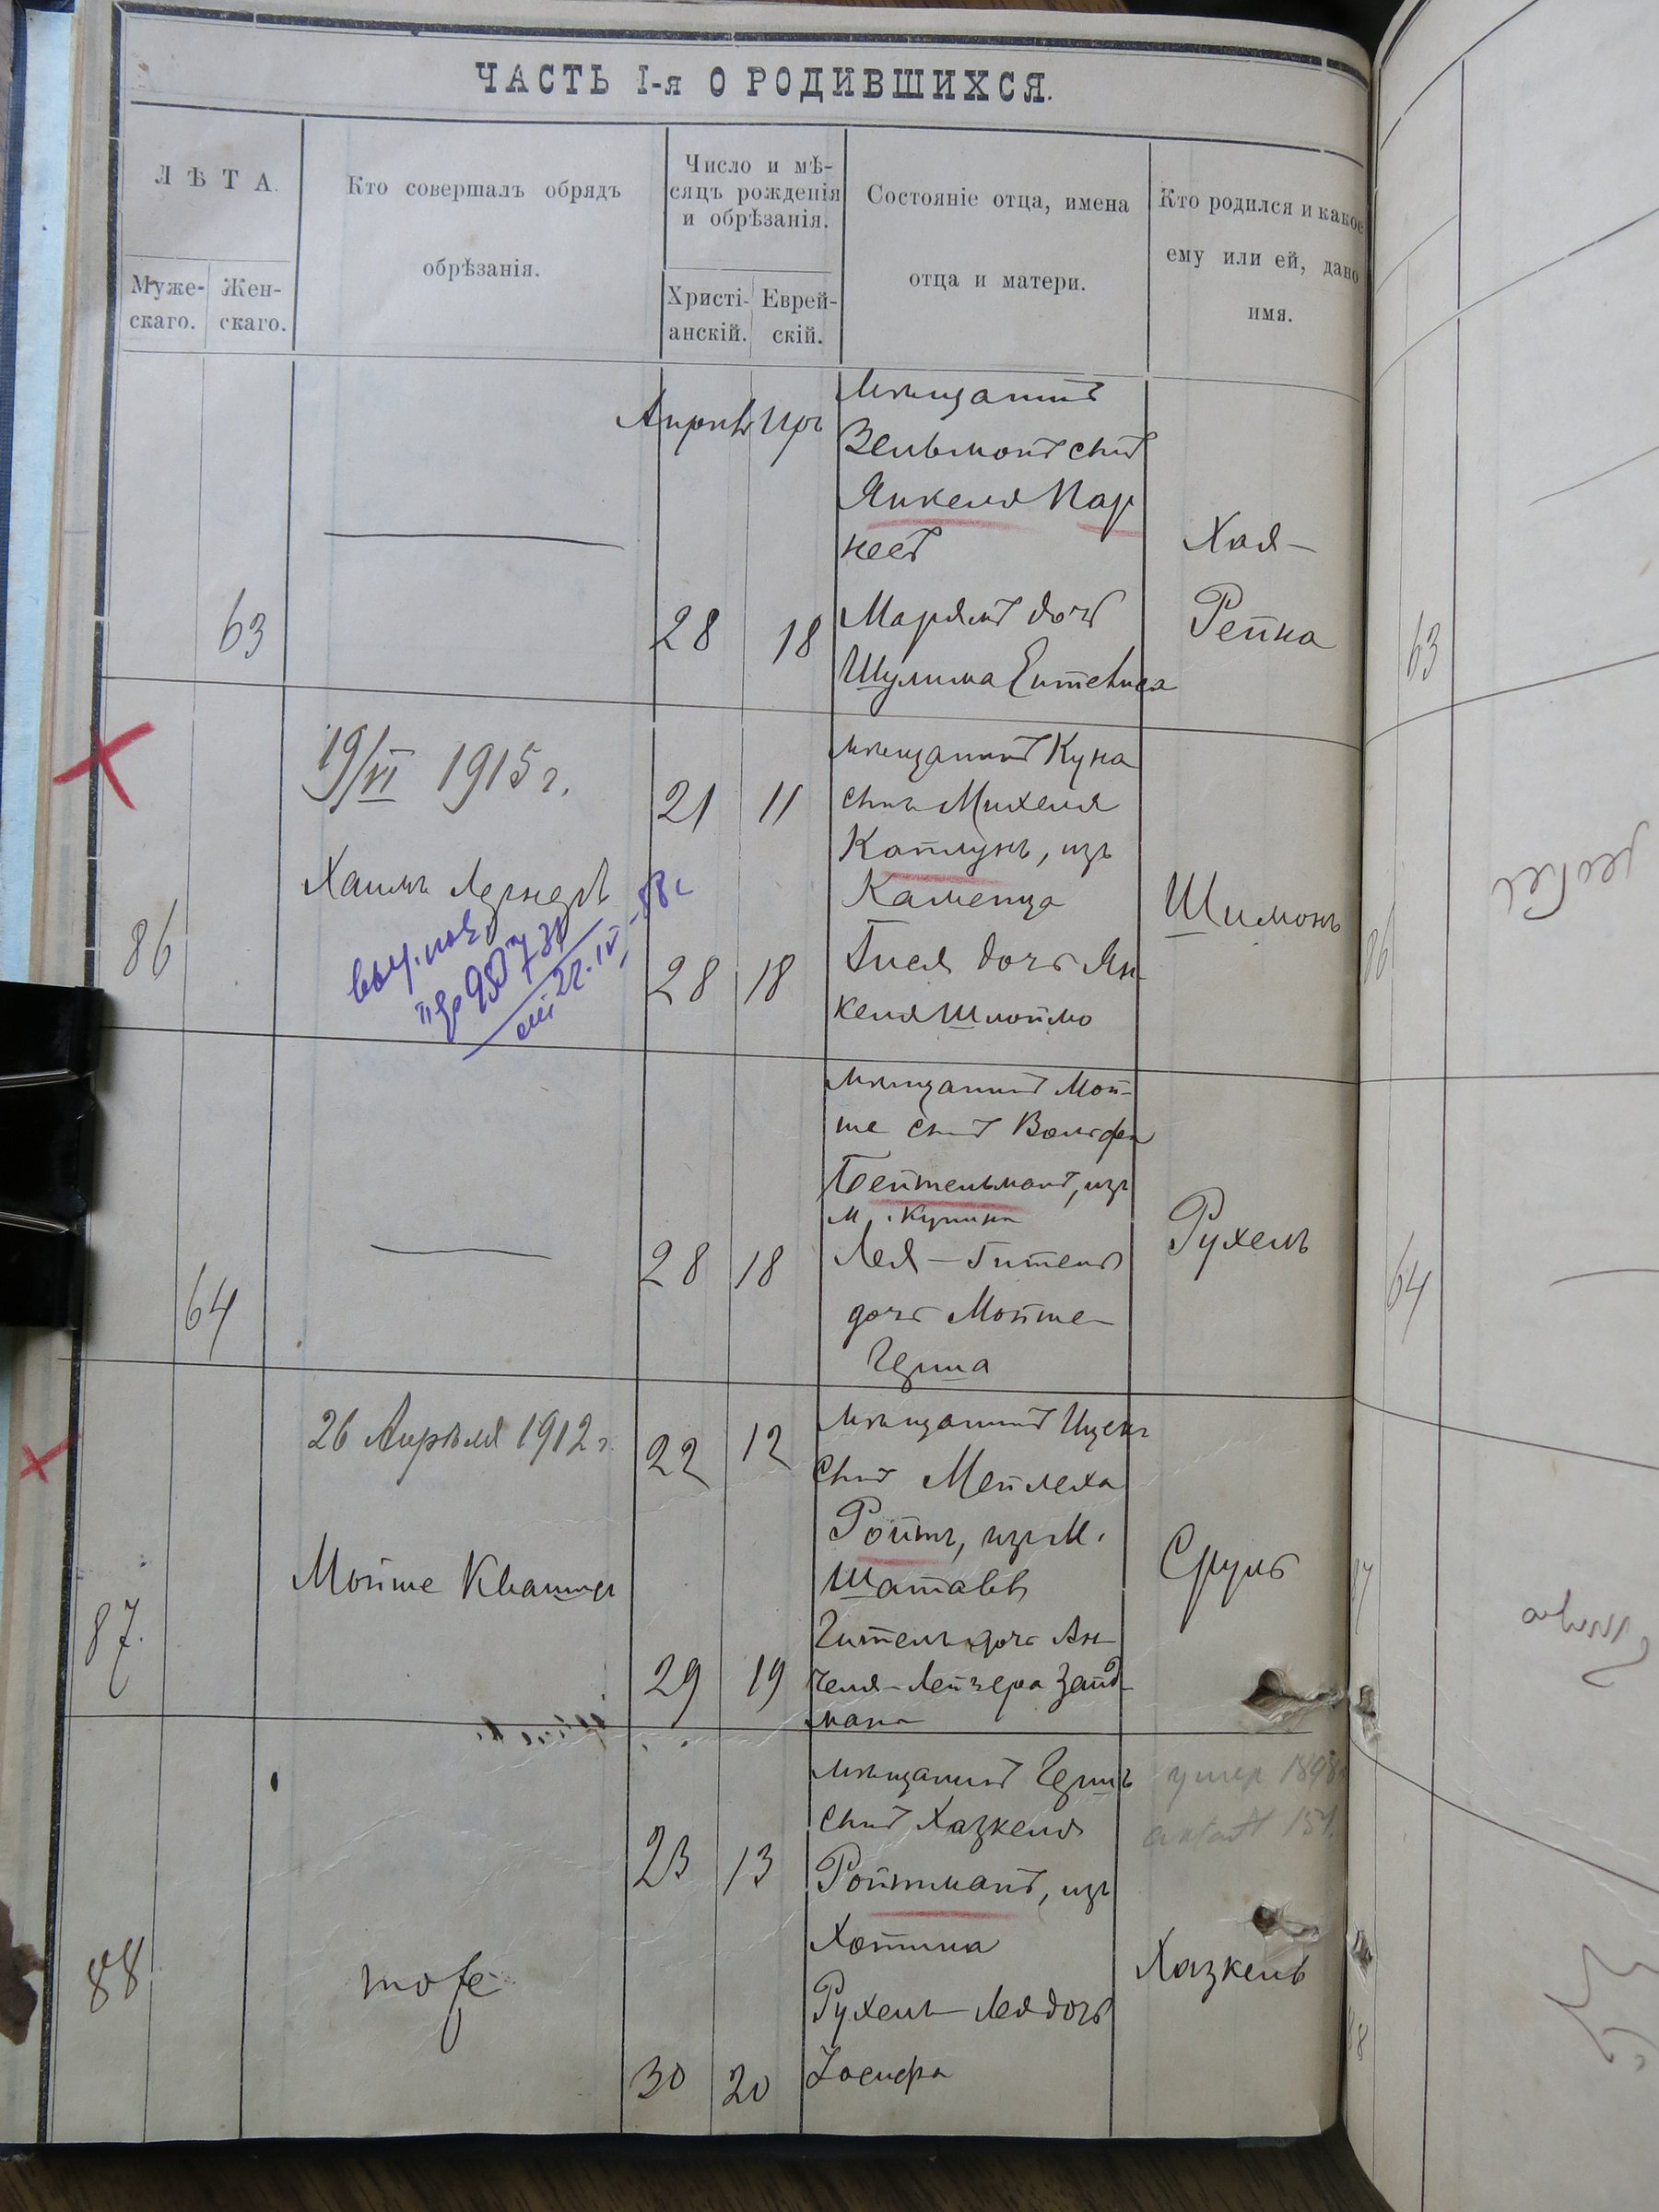 ЧАСТЬ I-я О РОДИВШИХСЯ.
ЛѢТА.
Муже-
скаго.
Жен-
скаго.
Кто совершалъ обрядъ
обрѣзанія.
Число и мѣ-
сяцъ рожденія
и обрѣзанія.
Христі-
анскій.
Еврей-
скій.
Состояніе отца, имена
отца и матери.
Кто родился и какое
ему или ей, дано
имя.
63
Апрель Іяръ
28 18
мѣщанинъ
Зельманъ сынъ
Янкеля Пар
несъ
Марьямъ дочь
Шулима
Хая-
Рейка
63
86
19/VI 1915 г.
Хаимъ Лернеръ
21 11
28 18
мѣщанинъ Куна
сынъ Михеля
Каплунъ, изъ
Каменца
Гися дочь Ян-
келя Шлоймо
Шимонъ
86
64
28 18
мѣщанинъ Мой-
ше сынъ Вольфа
Бейтельманъ, изъ
м. Купина
Лея-Гитель
дочь Мойше-
Герша
Рухель
64
87.
26 Апрѣля 1912 г.
Мойше Квашъ
22 12
29 19
мѣщанинъ Ицекъ
сынъ Мейлеха
Ройтъ, изъ м.
Шатавы
Гитель дочь Ан-
челя-Лейзера Зайд-
мана
Сруль
87
88
тоже
23 13
30 20
мѣщанинъ Гершъ
сынъ Хазкеля
Ройтманъ, изъ
Хотина
Рухель-Лея дочь
Іосифа
умер 1898
154.
Хазкель
88